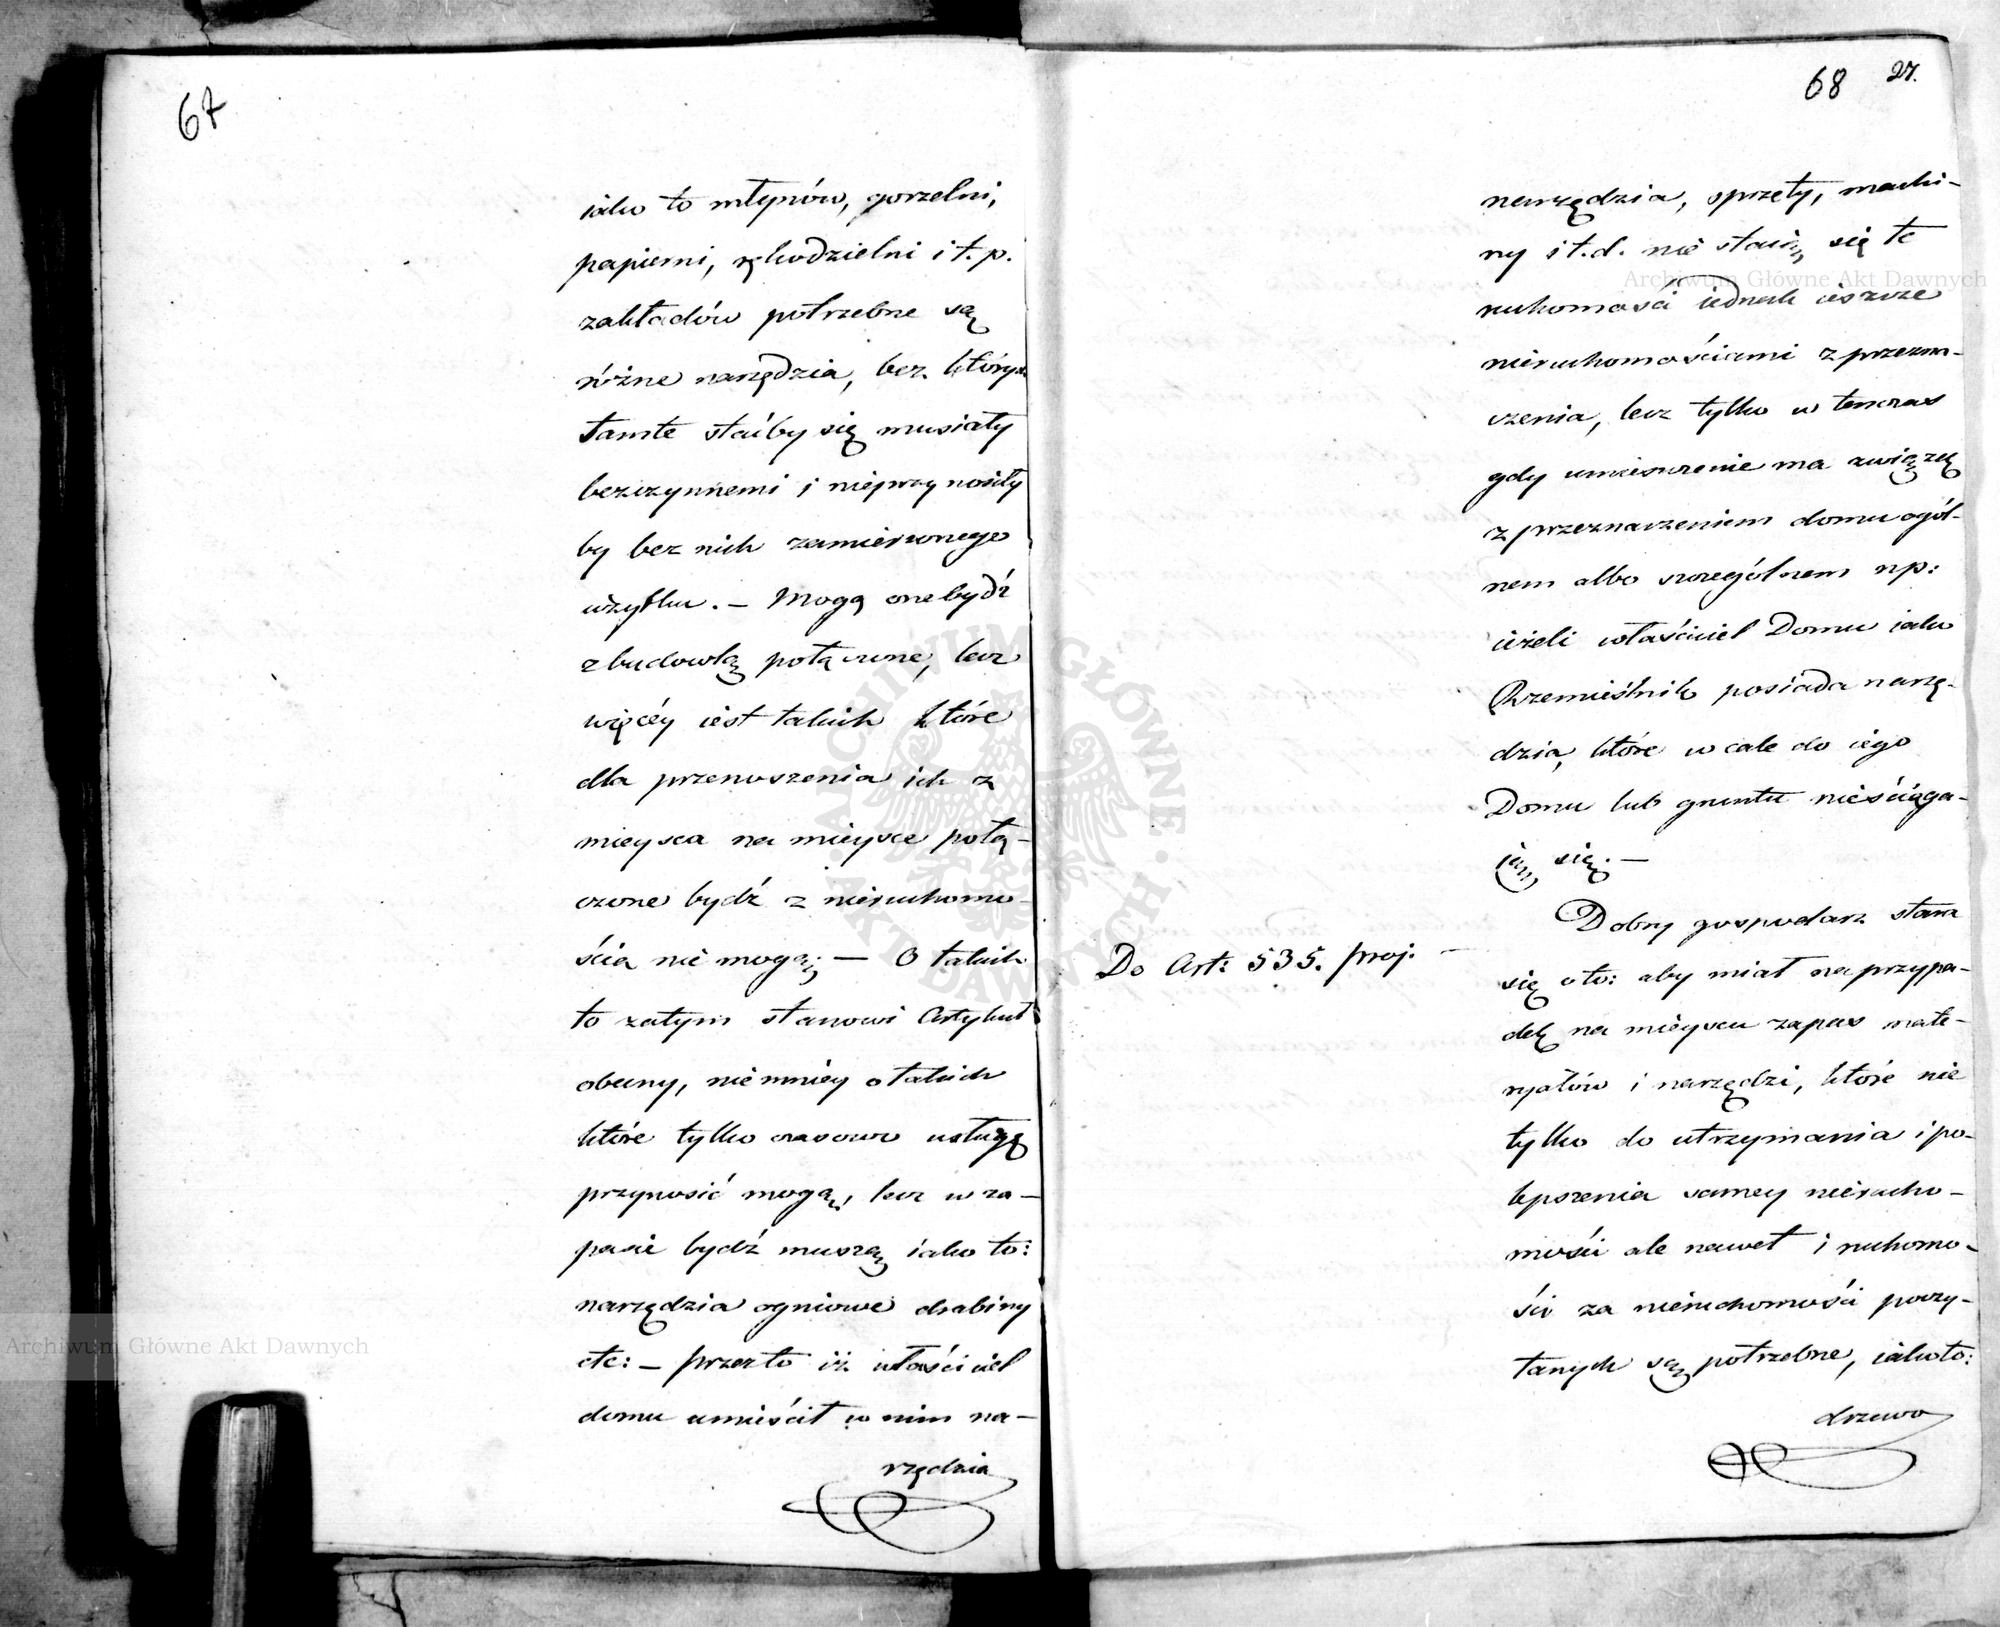 67
iako to młynów, gorzelni,
papierni, rękodzielni i t. p.
zakładów potrzebne są
różne narzędzia, bez których
tamte staćby się musiały
bezczynnemi i nieprzynosiły
by bez nich zamierzonego
użytku. – Mogą one bydź
z budowlą połączone, lecz
więcéy iest takich które
dla przenoszenia ich z
mieysca na mieysce połą-
czone bydź z nieruchomo-
ścią nie mogą; – O takich
to zatym stanowi Artykuł
obecny, niemniey o takich
które tylko czasowo usługę
przynosić mogą, lecz w za-
pasie bydź muszą iako to:
narzędzia ogniowe drabiny
etc: – przez to iż właściciel
domu umieścił w nim na-
rzędzia
68 27.
narzędzia, sprzęty, machi-
ny i t. d. nie staią się te
ruchomości iednak ieszcze
nieruchomościami z przezna-
czenia, lecz tylko w tenczas
gdy umieszczenie ma związek
z przeznaczeniem domu ogól-
nem albo szczególnem np:
ieżeli właściciel Domu iako
Rzemieślnik posiada narzę-
dzia, które wcale do iego
Domu lub gruntu nieściąga-
ią się. –
Dobry gospodarz stara
Do Art: 535. proj. –
się oto: aby miał na przypa-
dek na mieyscu zapas mate-
ryałów i narzędzi, które nie
tylko do utrzymania i po-
lepszenia samey nierucho-
mości ale nawet i ruchomo-
ści za nieruchomości poczy-
tanych są potrzebne, iakoto:
drzewo
Archiwum Główne Akt Dawnych
Archiwum Główne Akt Dawnych
ARCHIWUM GŁÓWNE AKT DAWNYCH